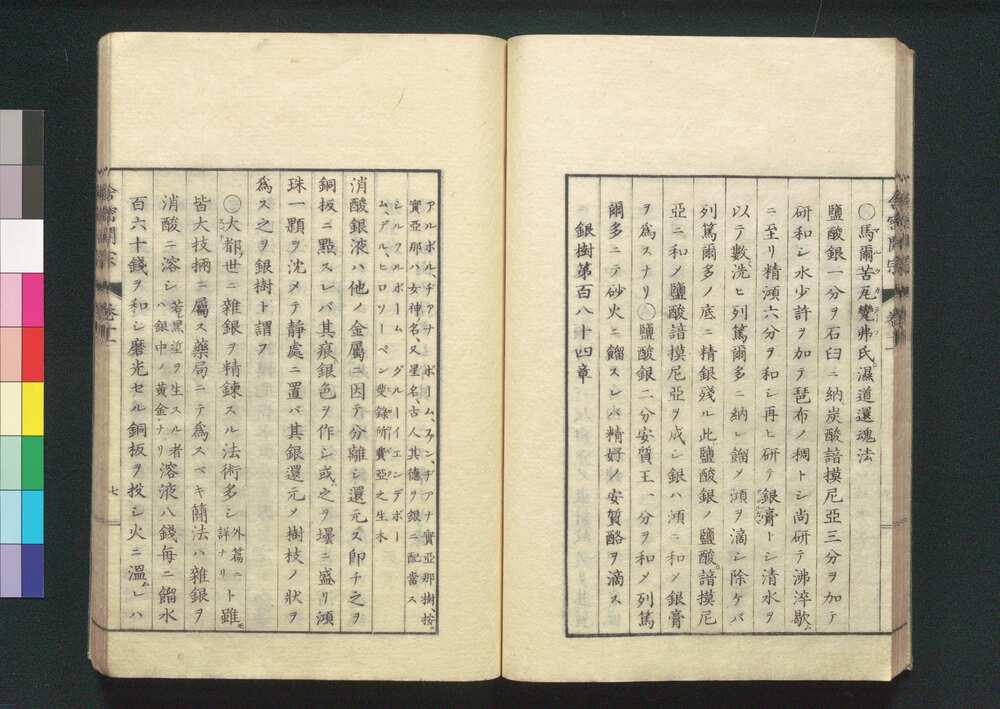 舎密開宗 巻十一
○馬爾苦瓦攵弗氏濕道還魂法
鹽酸銀一分ヲ石臼ニ納炭酸諳摸尼亞三分ヲ加テ
研和シ水少許ヲ加テ琶布ノ稠トシ尚研テ沸淬歇ム
ニ至リ精澒六分ヲ和シ再ヒ研テ銀膏トシ清水ヲ
以テ數洗ヒ列篤爾多ニ納レ餾メ澒ヲ滴シ除ケバ
列篤爾多ノ底ニ精銀殘ル此鹽酸銀ノ鹽酸諳摸尼
亞ニ和メ鹽酸諳摸尼亞ヲ成シ銀ハ澒ニ和メ銀膏
ヲ爲スナリ○鹽酸銀二分安質王一分ヲ和メ列篤
爾多ニテ砂火ニ餾スレバ精好ノ安質酪ヲ滴ス
銀樹第百八十四章
アルボル、ヂアナ ボームファン、ヂアナ 實亞那樹、按
實亞那ハ女神名、又星名、古人其德ヲ銀ニ配當ス
シルフルボーム グルーイエンデボー
ム、デル、ヒロソーペン 斐錄所費亞之生木
消酸銀液ハ他ノ金屬ニ因テ分離シ還元ス卽チ之ヲ
銅扳ニ點スレバ其痕銀色ヲ作シ或ハ之ヲ壜ニ盛リ澒
珠一顆ヲ沈メテ靜處ニ置バ其銀還元ノ樹枝ノ狀ヲ
爲ス之ヲ銀樹ト謂フ
○大都世ニ雜銀ヲ精鍊スル法術多シ外篇ニ詳ナリト雖モ
皆大技柄ニ屬ス藥局ニテ爲スベキ簡法ハ雜銀ヲ
消酸ニ溶シ若黑塗ヲ生スル者銀中ノ黄金ナリ溶液八錢每ニ餾水
百六十錢ヲ和シ磨光セル銅扳ヲ投シ火ニ溫ムレハ
舎密開宗 巻十一 七